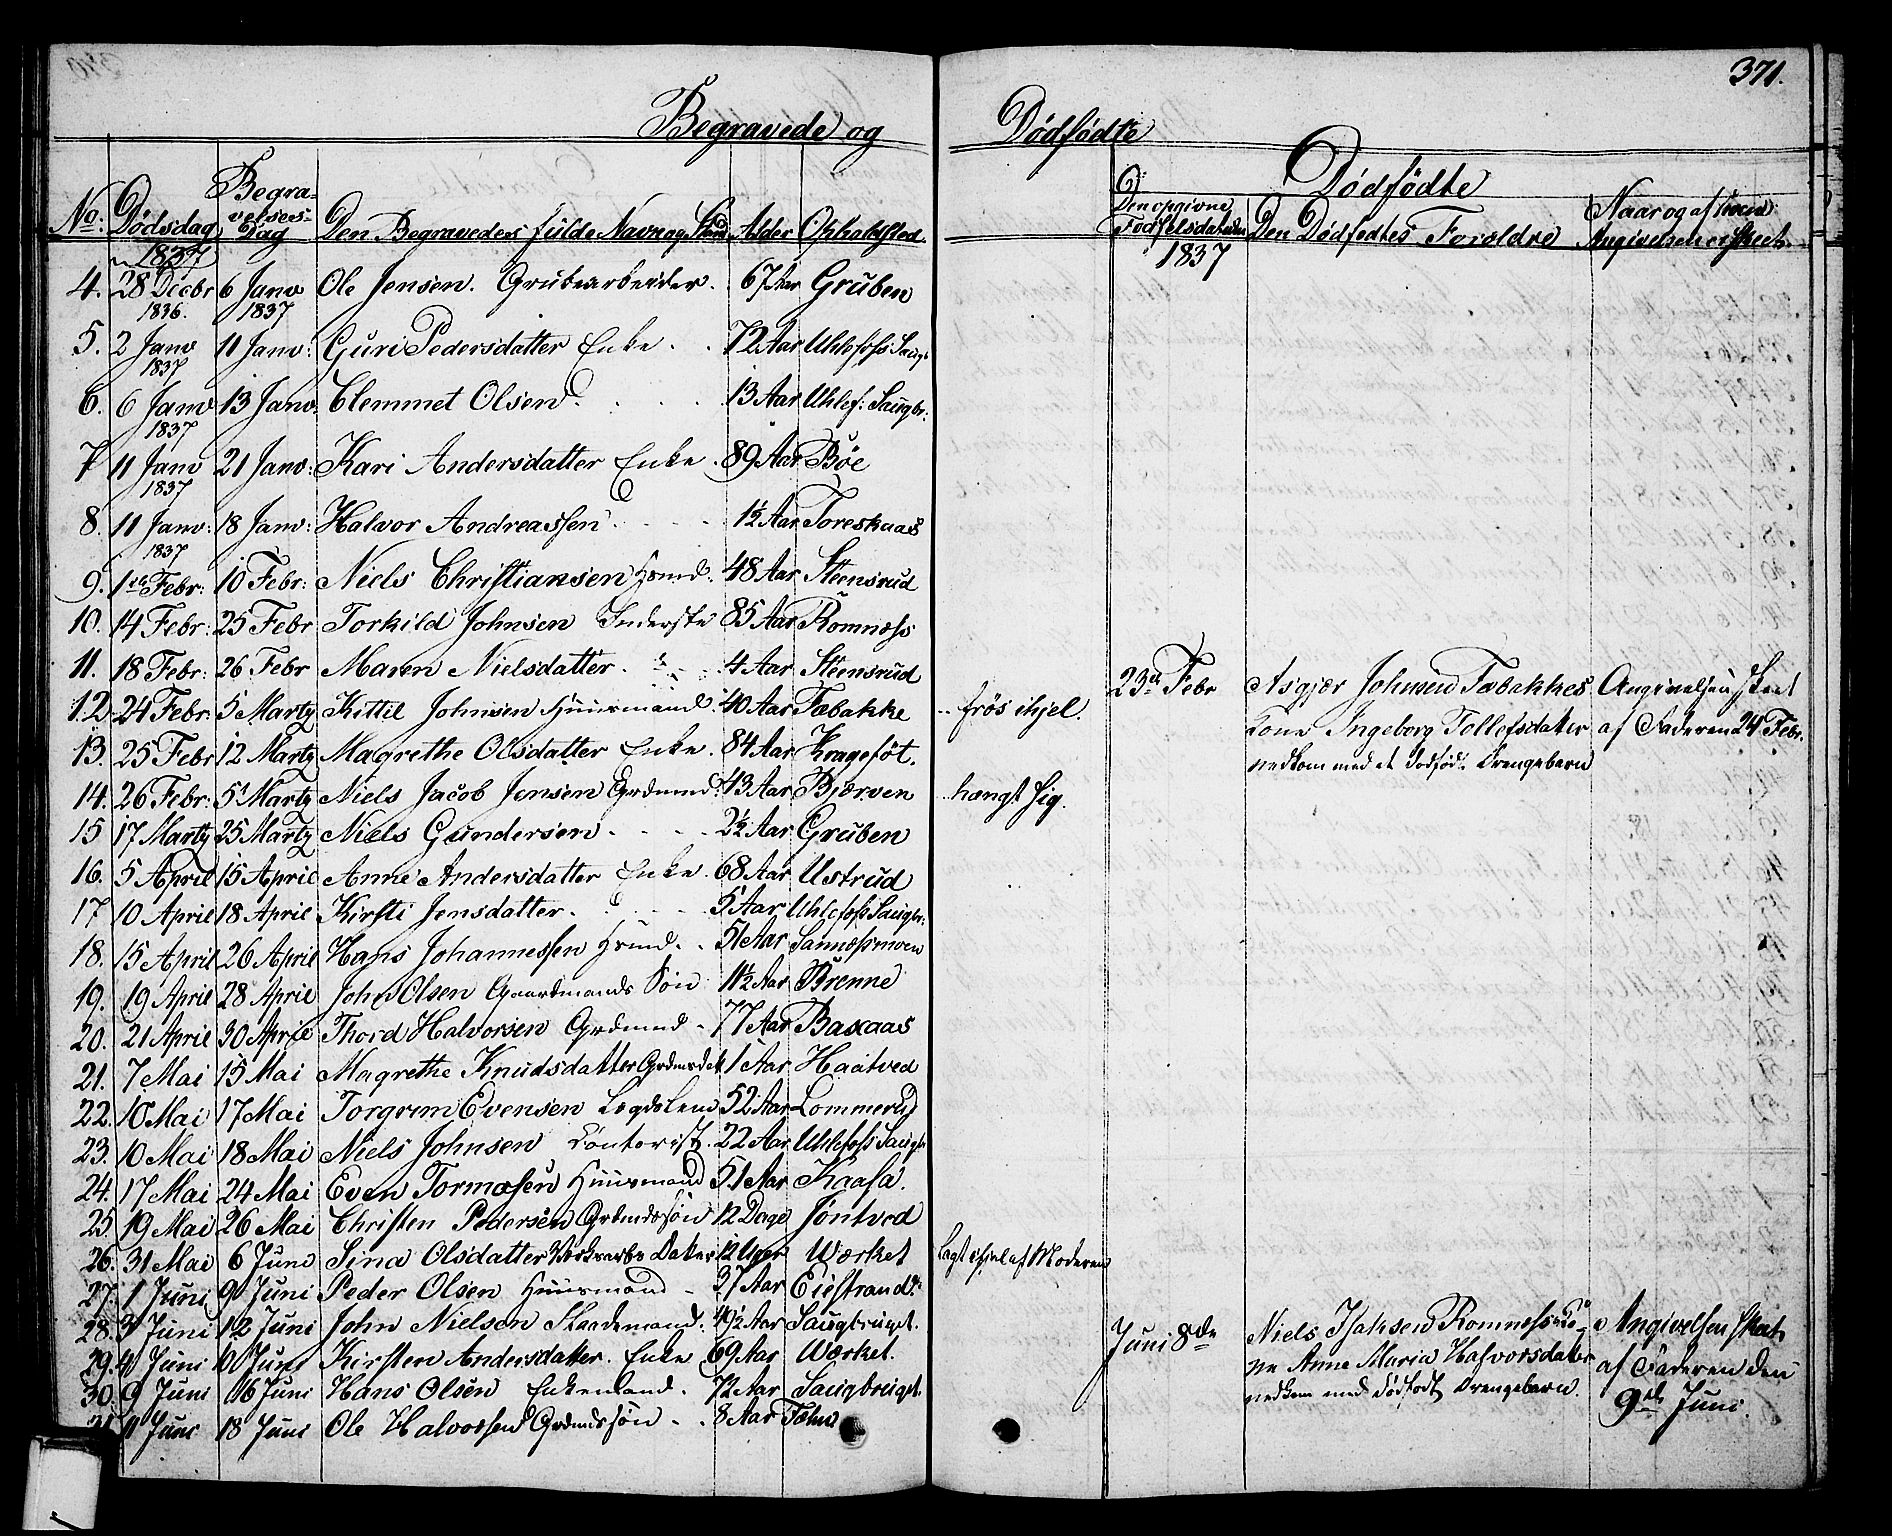 371.
Begravede og Dødfødte
No. Dødsdag Begravelses-Dag Den Begravedes fulde Navn og Stand Alder Opholdssted
1837
4. 28 Decbr 1836. 6 Janv 1837 Ole Jensen. Grubearbeider. 67 Aar Gruben
5. 2 Janv 1837 11 Janv: Guri Pedersdatter Enke. 72 Aar Uhlefoss Saugb
6. 6 Janv 1837 13 Janv. Clemmet Olsen. 13 Aar Uhlef: Saugbr:
7 11 Janv 1837 21 Janv: Kari Andersdatter Enke. 89 Aar Böe
8. 11 Janv: 1837 18 Janv: Halvor Andreassen 1½ Aar Toreskaas
9. 1ste Febr: 10 Febr: Niels Christiansen Hsmd. 48 Aar Steensrud
10. 14 Febr: 25 Febr Torkild Johnsen Inderste 85 Aar Romnæss
11. 18 Febr: 26 Febr Maren Nielsdatter. 4 Aar Steensrud
12 24 Febr. 5 Marty Kittil Johnsen Huusmand 40 Aar Tæbakke frös ihjel.
13. 25 Febr 12 Marty Magrethe Olsdatter Enke. 84 Aar Krageföt.
14. 26 Febr: 5 Marty Niels Jacob Jensen Grdmnd: 43 Aar Bjærven hængt sig.
15 17 Marty 25 Marty Niels Gundersen 2½ Aar. Gruben
16. 5 April 15 April Anne Andersdatter Enke. 68 Aar Ustrud
17 10 April 18 April Kirsti Jensdatter. 5 Aar Uhlefoss Saugbr:
18. 15 April 26 April Hans Johannessen Hsmd. 51 Aar Sannæssmoen
19. 19 April 28 April John Olsen Gaardmands Sön 11½ Aar Brenne
20. 21 April 30 April Thord Halvorsen Grdmnd 77 Aar Baxaas
21. 7 Mai 15 Mai Magrethe Knudsdatter Grdmsdat 1 Aar Haatved
22. 10 Mai 17 Mai Torgrim Evensen Lægdslem 52 Aar Lommerud
23. 10 Mai 18 Mai Niels Johnsen Contorist. 22 Aar Uhlefoss Saugb
24. 17 Mai 24 Mai Even Tormosen Huusmand 51 Aar Kaasa.
25 19 Mai 26 Mai Christen Pedersen Grdmdssön 12 Dage Jöntved
26. 31 Mai 6 Juni Sina Olsdatter Datter 12 Uger Wærket Lagt ihjel af Moderen
27. 1 Juni 9 Juni Peder Olsen Huusmand 37 Aar Eiestrand
28. 3 Juni 12 Juni John Nielsen 49½ Aar Saugbruget.
29. 4 Juni 10 Juni Kirsten Andersdatter. Enke 69 Aar Wærket.
30. 9 Juni 16 Juni Hans Olsen Enkemand. 72 Aar Saugbruget.
31. 11 Juni 18 Juni Ole Halvorsen Grdmdssön 8 Aar
Dødfødte
Den opgivne Födselsdatum Den Dødfødtes Foræeldre Naar og af hvem Angivelsen er skeet
1837
23de Febr Asgjær Johnsen Tæbakkes Angivelsen skeet
Kone Ingeborg Tollefsdatter af Faderen 24 Febr.
nedkom med et dödfödt Drengebarn
Juni 8de Niels Isaksen Romnæss Ko- Angivelsen skeet
ne Anne Maria Halvorsdatter af Faderen den
nedkom med dödfödt Drengebarn. 9de Juni.